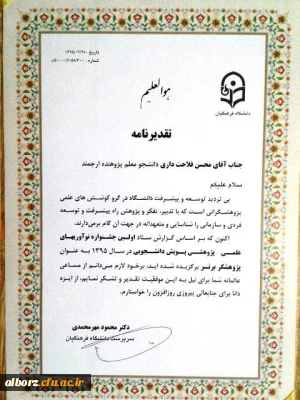 تاریخ: ۱۳۹۵/۰۹/۲۸
هوالعلیم
دانشگاه فرهنگیان
تقدیرنامه
جناب آقای محسن فلاحت داری دانشجو معلم پژوهنده ارجمند
سلام علیکم
بی تردید توسعه و پیشرفت دانشگاه در گرو کوشش های علمی
پژوهشگرانی است که با تدبیر، تفکر و پژوهش راه پیشرفت و توسعه
فردی و سازمانی را شناسایی و متعهدانه در جهت آن گام برمی‌دارند.
اکنون که بر اساس گزارش ستاد اولین جشنواره نوآوریهای
علمی پژوهشی پویش دانشجویی در سال ۱۳۹۵ به عنوان
پژوهشگر برتر برگزیده شده اید، برخود لازم می‌دانم از مساعی
عالمانه شما برای نیل به این موفقیت تقدیر و تشکر نمایم. از ایزد
دانا برای جنابعالی پیروزی روزافزون را خواستارم.
دکتر محمود مهرمحمدی
سرپرست دانشگاه فرهنگیان
alborz.cfu.ac.ir